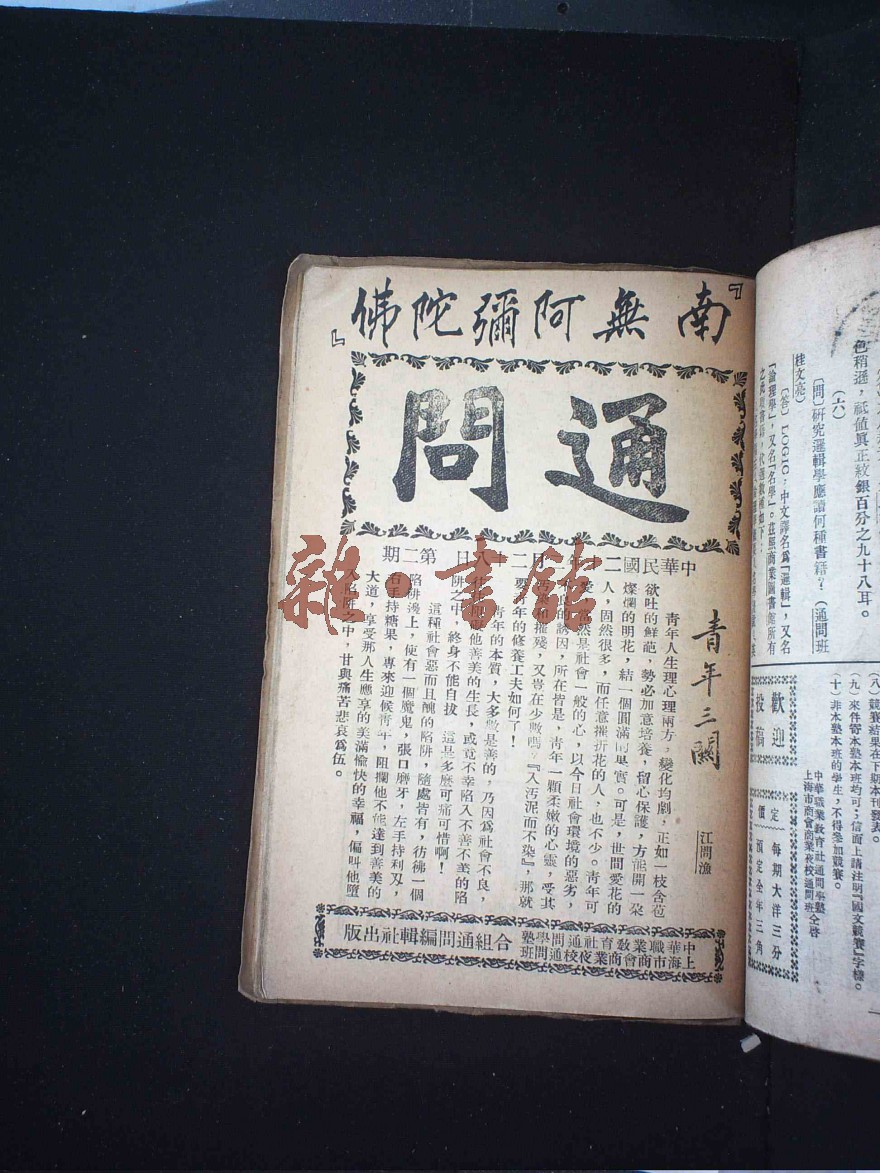 『南無阿彌陀佛』
通問
中華民國二
年
月二十八日
第二期
青年三關
江問漁
青年人生理心理兩方，變化均劇，正如一枝含苞
欲吐的鮮葩，勢必加意培養，留心保護，方能開一朵
燦爛的明花，結一個圓滿的果實。可是，世間愛花的
人，固然很多，而任意摧折花的人，也不少。青年可
愛，當然是社會一般的心，以今日社會環境的惡劣，
不良的誘因，所在皆是，青年一顆柔嫩的心靈，受其
和摧殘，又豈在少數嗎。『入汚泥而不染』，那就
要 年的修養工夫如何了！
青年的本質，大多數是善的，乃因爲社會不良，
他善美的生長，或竟不幸陷入不善不美的陷
阱之中，終身不能自拔，這是多麽可痛可惜啊！
這種社會惡而且醜的陷阱，隨處皆有，彷彿一個
陷阱邊上，便有一個魔鬼，張口磨牙，左手持利刃，
右手持糖果，專來迎候靑年，阻攔他不能達到善美的
大道，享受那人生應享的美滿愉快的幸福，偏叫他墮
入陷阱之中，甘與痛苦悲哀爲伍。
中華職業教育社通問學塾
上海市商會商業夜校通問班
合組通問編輯社出版
色稍遜，祗値眞正紋銀百分之九十八耳。
（六）
〔問〕硏究邏輯學應讀何種書籍？（通問班
桂文亮）
〔答〕LOGIC：中文譯名爲『邏輯』，又名
『論理學』，又名『名學』。茲照商業圖書館所有
（八）競賽結果在下期本刊發表。
（九）來件寄本塾本班均可；信面上請注明『國文競賽』字樣。
（十）非本塾本班的學生，不得參加競賽。
中華職業教育社通問學塾
上海市商會商業夜校通問班全啓
歡迎
投稿
定 每期大洋三分
價 預定全年三角
雜·書館